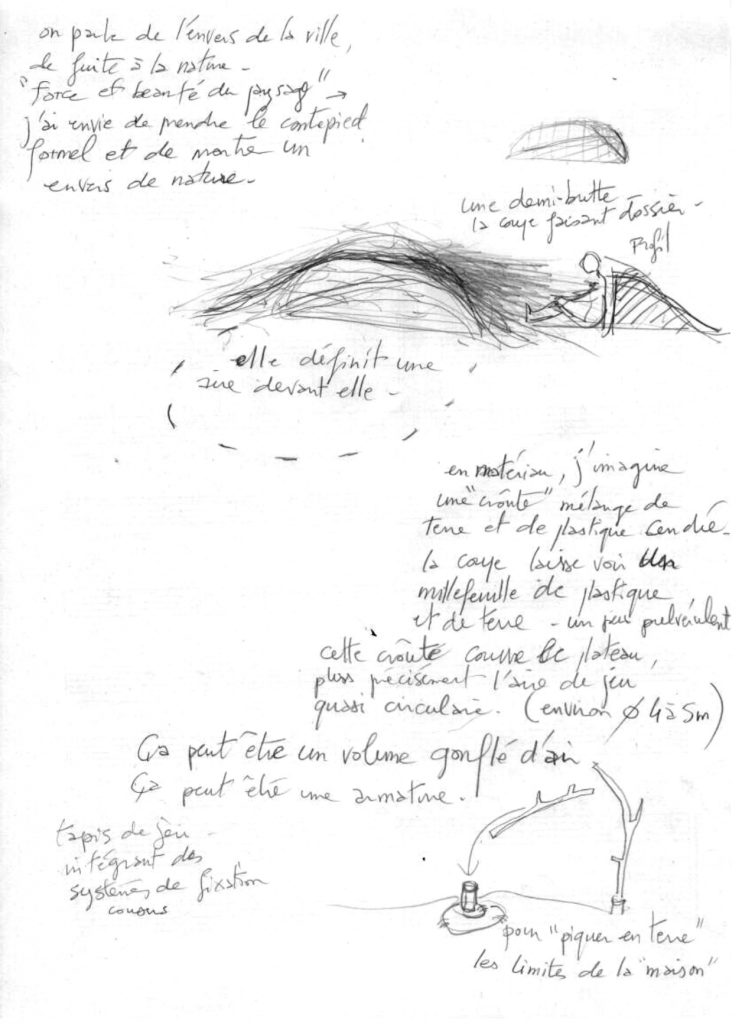 on parle de l'envers de la ville,
de fuite à la nature -
"force et beauté du paysage" →
j'ai envie de prendre le contepied
formel et de montrer un
envers de nature -
une demi-butte
la coupe faisant dossier -
Profil
elle définit une
aire devant elle -
en matériau, j'imagine
une "croûte" mélange de
terre et de plastique cendré -
la coupe laisse voir un
millefeuille de plastique
et de terre - un peu pulvérulent
cette croûte couvre le plateau,
plus précisément l'aire de jeu
quasi circulaire. (environ ø 4 à 5m)
Ça peut être un volume gonflé d'air
Ça peut être une armature.
tapis de jeu -
intégrant des
systèmes de fixation
cousus
pour "piquer en terre"
les limites de la "maison"